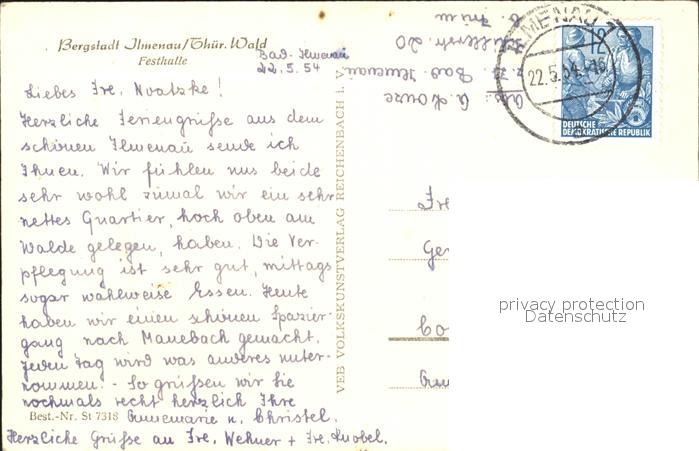 Bergstadt Ilmenau/Thür. Wald
Festhalle
Bad-Ilmenau
22.5.54
Liebes Frl. Noatzke!
Herzliche Feriengrüsse aus dem
schönen Ilmenau sende ich
Ihnen. Wir fühlen uns beide
sehr wohl zumal wir ein sehr
nettes Quartier, hoch oben am
Walde gelegen, haben. Die Ver-
pflegung ist sehr gut, mittags
sogar wahlweise Essen. Heute
haben wir einen schönen Spazier-
gang nach Manebach gemacht.
Jeden Tag wird was anderes unter-
nommen. - So grüßen wir Sie
nochmals recht herzlich Ihre
Annemarie u. Christel.
Best.-Nr. St 7318
Herzliche Grüße an Frl. Wehner + Frl. Knobel.
VEB VOLKSKUNSTVERLAG REICHENBACH I. V.
Abs: A.
z. Z. Bad Ilmenau
20
b.
ILMENAU
22.5.54
12
DEUTSCHE
DEMOKRATISCHE REPUBLIK
Frl
Ger
privacy protection
Datenschutz